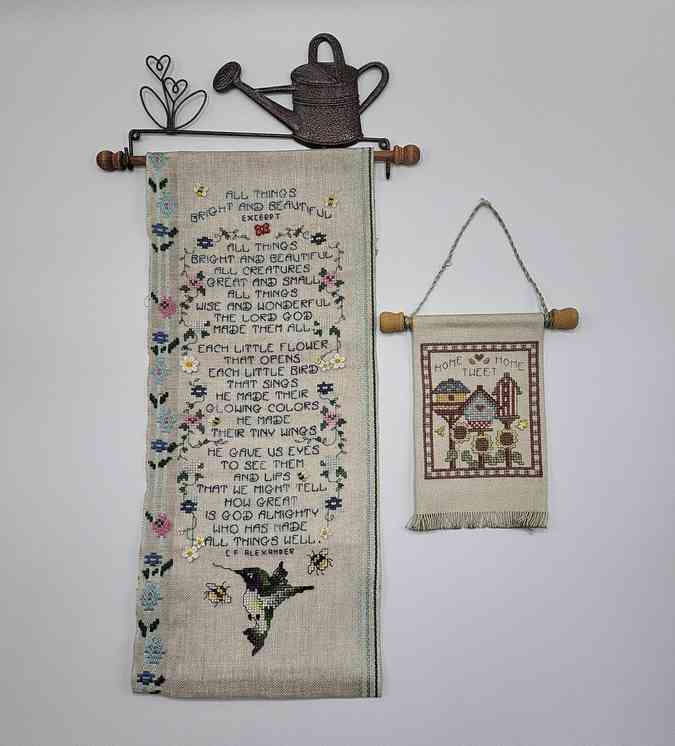 ALL THINGS
BRIGHT AND BEAUTIFUL
EXCERPT
ALL THINGS
BRIGHT AND BEAUTIFUL
ALL CREATURES
GREAT AND SMALL
ALL THINGS
WISE AND WONDERFUL
THE LORD GOD
MADE THEM ALL.
EACH LITTLE FLOWER
THAT OPENS
EACH LITTLE BIRD
THAT SINGS
HE MADE THEIR
GLOWING COLORS
HE MADE
THEIR TINY WINGS
HE GAVE US EYES
TO SEE THEM
AND LIPS
THAT WE MIGHT TELL
HOW GREAT
IS GOD ALMIGHTY
WHO HAS MADE
ALL THINGS WELL.
C F ALEXANDER
HOME HOME
TWEET